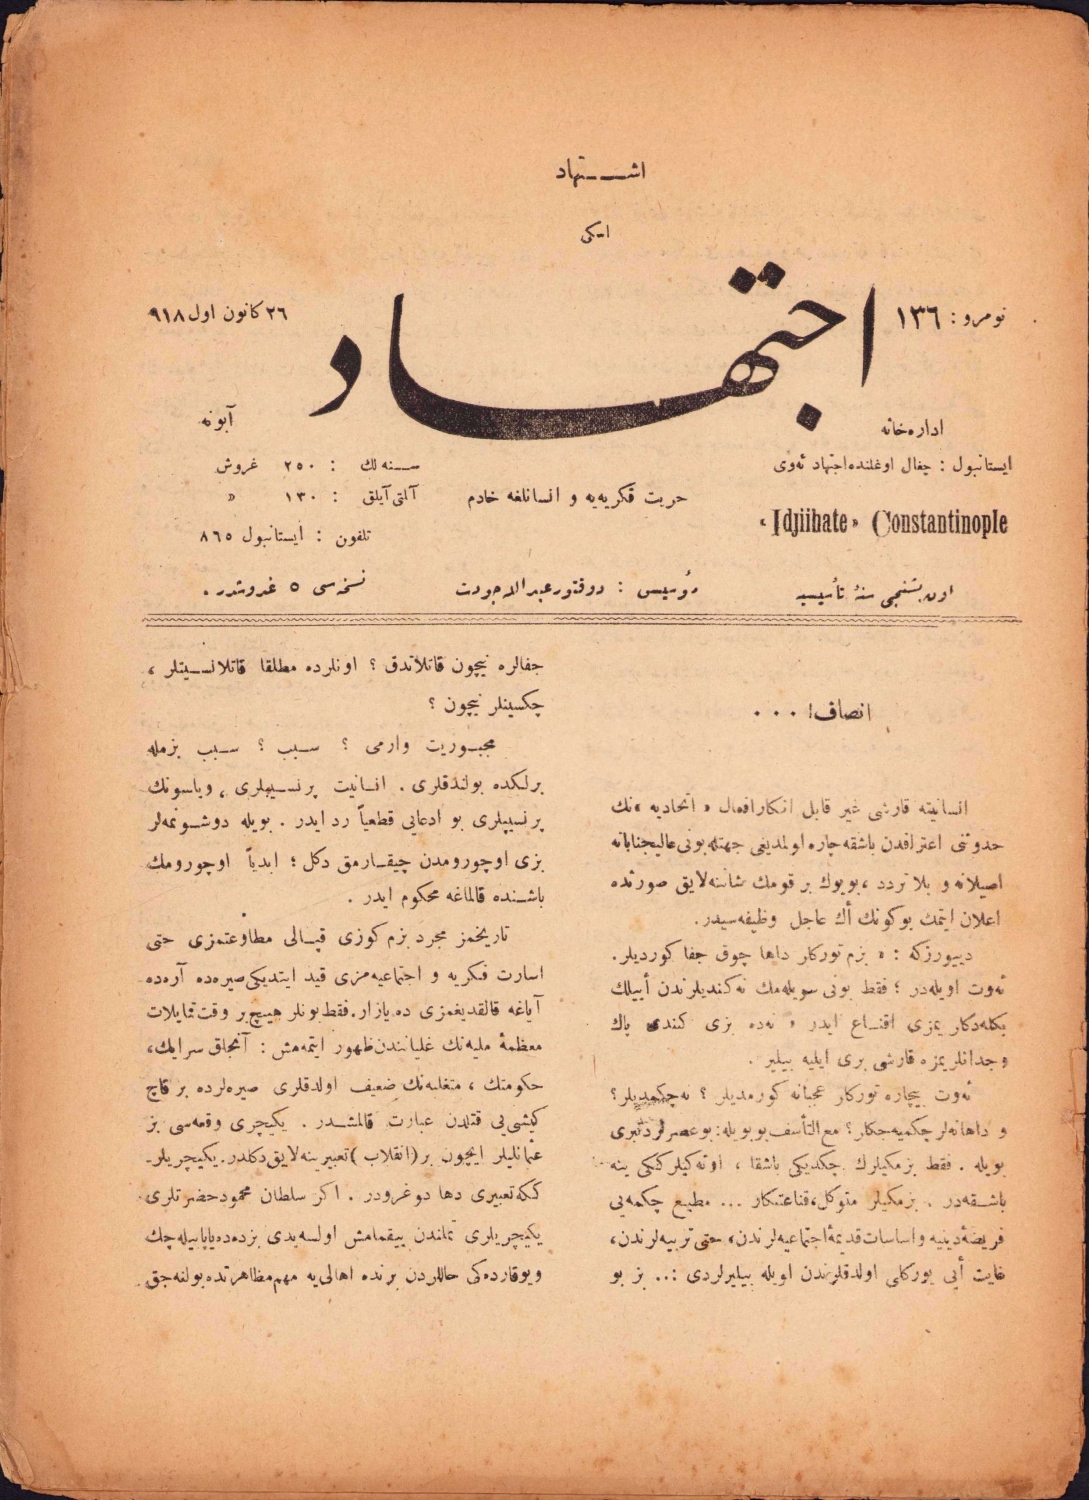 اشـــتهاد
ایکی
اجتهاد
نومرو : ١٣٦
٢٦ کانون اول ٩١٨
اداره‌خانه
ایستانبول : جغال اوغلنده اجتهاد ئه‌وی
«Idjtihate» Constantinople
حریت فکریه‌یه و انسانلغه خادم
آبونه
سـنه‌لك : ٢٥٠ غروش
آلتی آیلق : ١٣٠ »
تلفون : ایستانبول ٨٦٥
اون بشنجی سنهٔ تأسیسیه
مؤسسی : دوقتور عبدالله جودت
نسخه‌سی ٥ غروشدر .
انصاف! . . .
انسانیته قارشی غیر قابل انکار افعال « اتحادیه »نك
حدوثنی اعترافدن باشقه چاره اولمدیغی جهتله بونی عالیجنابانه
اصیلانه و بلا تردد ، بویوك بر قومك شاننه لایق صورتده
اعلان ایتمك بوکونك أك عاجل وظیفه‌سیدر.
دییورزکه : « بزم تورکلر داها چوق جفا کوردیلر.
ئه‌وت اویله‌در ؛ فقط بونی سویله‌مك نه کندیلرندن أییلك
بکله‌دکلریمزی اقنـاع ایدر ، نه‌ده بزی کندی پاك
وجدانلریمزه قارشی بری ایلیه بیلیر .
ئه‌وت بیچاره تورکلر عجبا نه کورمدیلر ؟ نه چکمدیلر؟
و داها نه‌لر چکمیه‌جکلر؟ مع‌التأسف بو بویله: بو عصرلردنبری
بویله . فقط بزمکیلرك چکدیکی باشقا ، اوته‌کیلرکنکی ینه
باشـقه‌در . بزمکیلر متوکل، قناعتکار ... مطیع چکمه‌یی
فریضهٔ دینیه و اساسات قدیمهٔ اجتماعیه‌لرندن، حتی تربیه‌لرندن،
غایت أیی یورکلی اولدقلرندن اویله بیلیرلردی :.. بز بو
جفالره نیچون قاتلاندق ؟ اونلرده مطلقا قاتلانسـینلر ،
چکسینلر نیچون ؟
مجبـوریت وارمی ؟ سـبب ؟ سـبب بزمله
برلکده بولندقلری . انسـانیت پرنسـیپلری ، ویلسونك
پرنسیپلری بو ادعایی قطعیاً رد ایدر . بویله دوشـونمه‌لر
بزی اوچورومدن چیقـارمق دکل ؛ ابدیاً اوچورومك
باشـنده قالماغه محکوم ایدر .
تاریخمز مجرد بزم کوزی قپـالی مطاوعتمزی حتی
اسارت فکریه و اجتماعیه‌مزی قید ایتدیکی صیره‌ده آره‌ده
آیاغه قالقدیغمزی ده یازار. فقط بونلر هیـچ بر وقت تمایلات
معظمهٔ ملیه‌نك غلیانندن ظهور ایتمه‌مش : آنجاق سرایك،
حکومتك ، متغلبه‌نك ضعیف اولدقلری صیره‌لرده بر قاچ
کیشی‌یی قتلدن عبارت قالمشـدر . یکیچری وقعه‌سی بز
عثمانلیلر ایچون بر (انقلاب) تعبیرینه لایق دکلدر. یکیچریلر‌ـ
ککه تعبیری دها دوغرودر . اکر سلطان محمود حضرتلری
یکیچریلری تملندن ییقمامش اولسه‌یدی بزده‌ده یاپابیله‌جك
و یوقارده‌کی حاللردن برنده اهالی‌یه مهم مظاهرتده بولنه‌جق